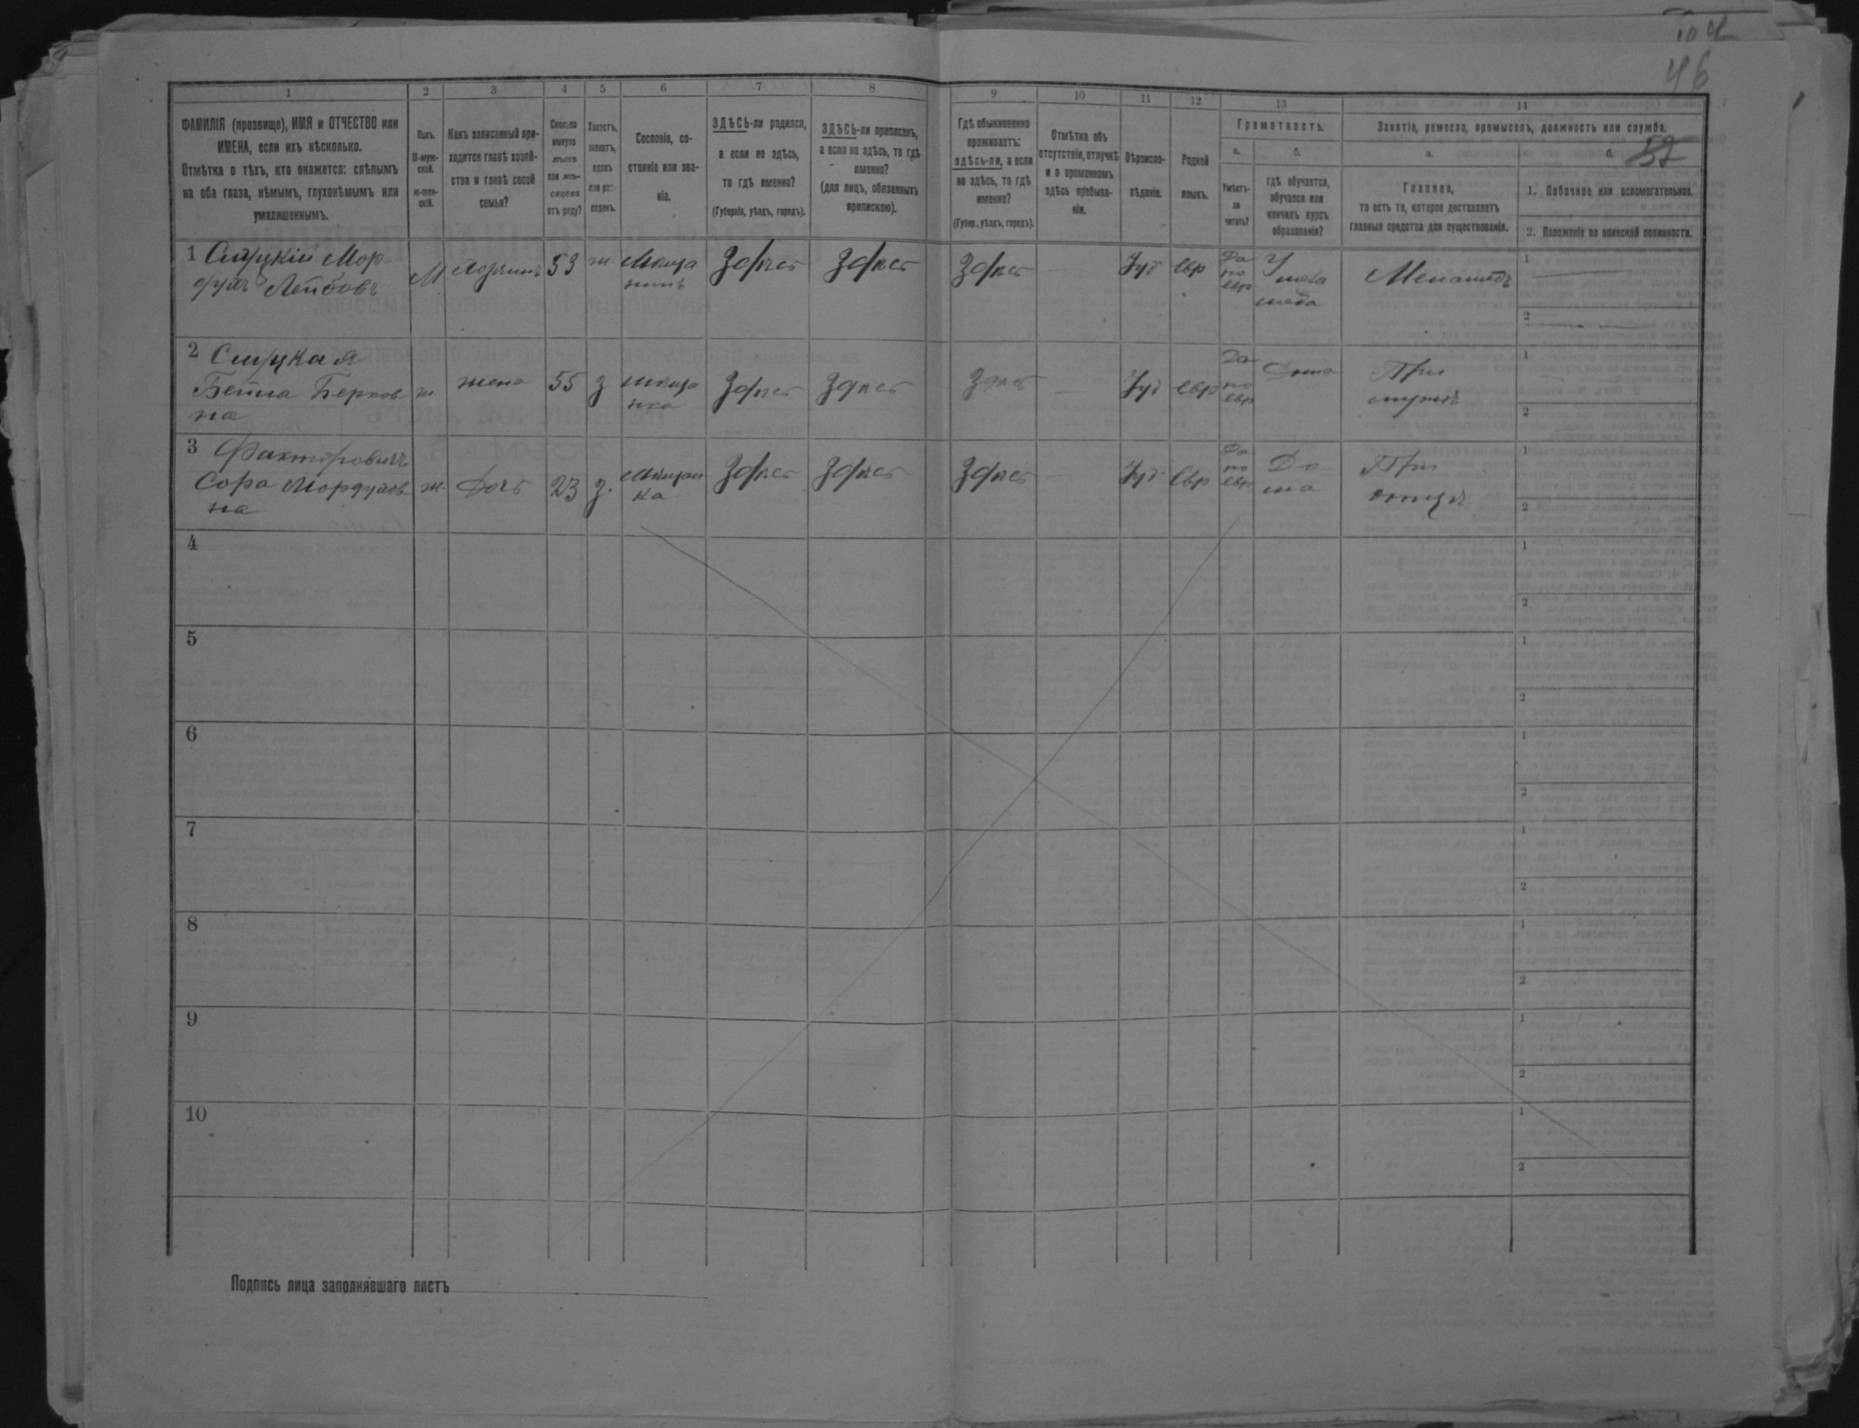 104
46
1 2 3 4 5 6 7 8 9 10 11 12 13 14
ФАМИЛІЯ (прозвище), ИМЯ и ОТЧЕСТВО или
ИМЕНА, если ихъ нѣсколько.
Отмѣтка о тѣхъ, кто окажется: слѣпымъ
на оба глаза, нѣмымъ, глухонѣмымъ или
умалишеннымъ.
Полъ.
М-муж-
ской.
Ж-жен-
скій.
Какъ записанный при-
ходится главѣ хозяй-
ства и главѣ своей
семьи?
Сколько
минуло
лѣтъ
или мѣ-
сяцевъ
отъ роду?
Холостъ,
женатъ,
вдовъ
или раз-
веденъ.
Сословіе, со-
стояніе или зва-
ніе.
ЗДѢСЬ-ли родился,
а если не здѣсь,
то гдѣ именно?
(Губернія, уѣздъ, городъ).
ЗДѢСЬ-ли приписанъ,
а если не здѣсь, то гдѣ
именно?
(для лицъ, обязанныхъ
припискою).
Гдѣ обыкновенно
проживаетъ:
здѣсь-ли, а если
не здѣсь, то гдѣ
именно?
(Губер., уѣздъ, городъ).
Отмѣтка объ
отсутствіи, отлучкѣ
и о временномъ
здѣсь пребыва-
ніи.
Вѣроиспо-
вѣданіе.
Родной
языкъ.
Грамотность.
а.
Умѣетъ-
ли
читать?
б.
гдѣ обучается,
обучался или
кончилъ курсъ
образованія?
Занятіе, ремесло, промыселъ, должность или служба.
а.
Главное,
то есть то, которое доставляетъ
главныя средства для существованія.
б. 52
1. Побочное или вспомогательное.
2. Положеніе по воинской повинности.
1 Слуцкій Мор
духъ Лейбовъ
М
Хозяинъ
53
ж
Мѣща
нинъ
Здѣсь
Здѣсь
Здѣсь
Іуд
Евр
Да
по
евр
У
мела
меда
Меламедъ
1
2
2 Слуцкая
Бейла Берков
на
ж
жена
55
з
мѣща
нка
Здѣсь
Здѣсь
Здѣсь
Іуд
евр
Да
по
евр
Дома
При
мужѣ
1
2
3 Факторовичъ
Сора Мордухов
на
ж.
Дочь
23
з.
Мѣщан
ка
Здѣсь
Здѣсь
Здѣсь
Іуд
Евр
Да
по
евр
До
ма
При
отцѣ
1
2
4
1
2
5
1
2
6
1
2
7
1
2
8
1
2
9
1
2
10
1
2
Подпись лица заполнявшаго листъ